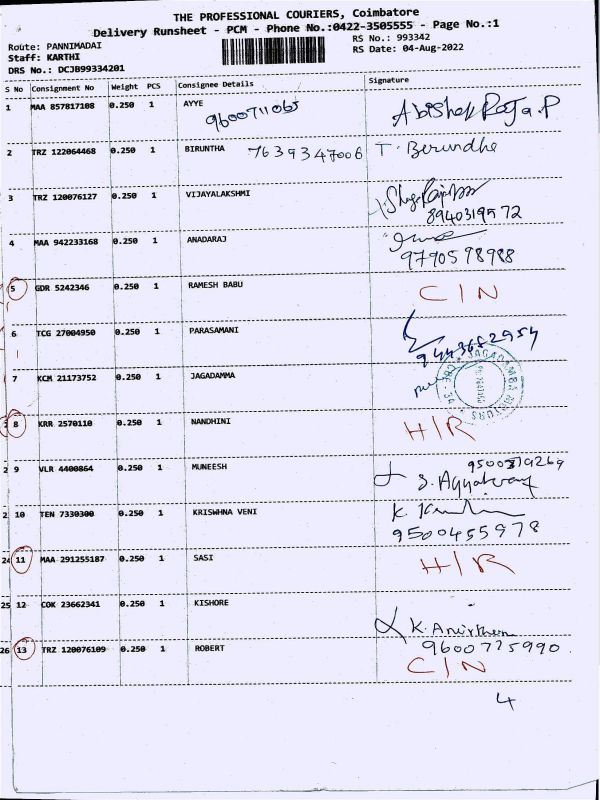 THE PROFESSIONAL COURIERS, Coimbatore
Delivery Runsheet - PCM - Phone No.:0422-3505555 - Page No.:1
Route: PANNIMADAI
RS No.: 993342
Staff: KARTHI
RS Date: 04-Aug-2022
DRS No.: DCJB99334201
S No Consignment No Weight PCS Consignee Details Signature
1 MAA 857817108 0.250 1 AYYE
9600711065
Abishek Raja.P
2 TRZ 122064468 0.250 1 BIRUNTHA 7639347006 T. Berundha
3 TRZ 120076127 0.250 1 VIJAYALAKSHMI
8940319572
4 MAA 942233168 0.250 1 ANADARAJ
9790598988
5 GDR 5242346 0.250 1 RAMESH BABU C/N
6 TCG 27004950 0.250 1 PARASAMANI
9443682954
7 KCM 21173752 0.250 1 JAGADAMMA
8 KRR 2570110 0.250 1 NANDHINI H/R
2 9 VLR 4400864 0.250 1 MUNEESH
S. Ayyakannu
2 10 TEN 7330300 0.250 1 KRISWHNA VENI K.
9500455978
24 11 MAA 291255187 0.250 1 SASI H/R
25 12 COK 23662341 0.250 1 KISHORE
K.
26 13 TRZ 120076109 0.250 1 ROBERT 9600725990
C/N
4